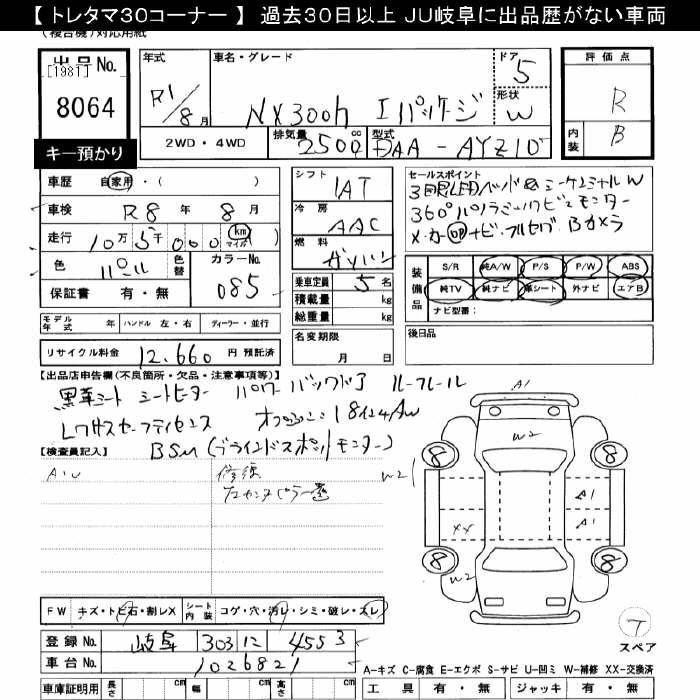 【 トレタマ30コーナー 】 過去30日以上 JU岐阜に出品歴がない車両
(複合機)対応用紙
出品No.
[1981]
8064
キー預かり
年式
R1/8月
車名・グレード
NX300h Iパッケージ
ドア
5
形状
W
2WD・4WD
排気量
2500 cc
型式
DAA-AYZ10
評価点
R
内装
B
車歴 自家用・( )
車検 R8年 8月
走行 10万5千000 (km マイル)
色 パール 色替
カラーNo.
085
保証書 有・無
シフト
IAT
冷房
AAC
燃料
ガソリン
乗車定員 5 名
積載量 kg
総重量 kg
セールスポイント
3眼LEDヘッド&シーケンシャルW
360°パノラミックビューモニター
メーカーOPナビ・フルセグ Bカメラ
装備品
S/R 純A/W P/S P/W ABS
純TV 純ナビ 革シート 外ナビ エアB
ナビ型番:
モデル年式 年 ハンドル 左・右 ディーラー・並行
リサイクル料金 12,660 円 預託済
名変期限
月 日
後日品
【出品店申告欄(不良箇所・欠品・注意事項等)】
黒革シート シートヒーター パワーバックドア ルーフレール
レクサスセーフティセンス 18インチAW
BSM(ブラインドスポットモニター)
【検査員記入】
修復
A1
W2
W2
A1
A1
XX
W2
8
8
8
8
T
スペア
FW キズ・トビ石・割レX シート内装 コゲ・穴・汚レ・シミ・破レ・スレ
登録No. 岐阜 303 に 4553
車台No. 1026821
車庫証明用 長さ cm 幅 cm 高さ cm
A-キズ C-腐食 E-エクボ S-サビ U-凹ミ W-補修 XX-交換済
工具 有・無 ジャッキ 有・無